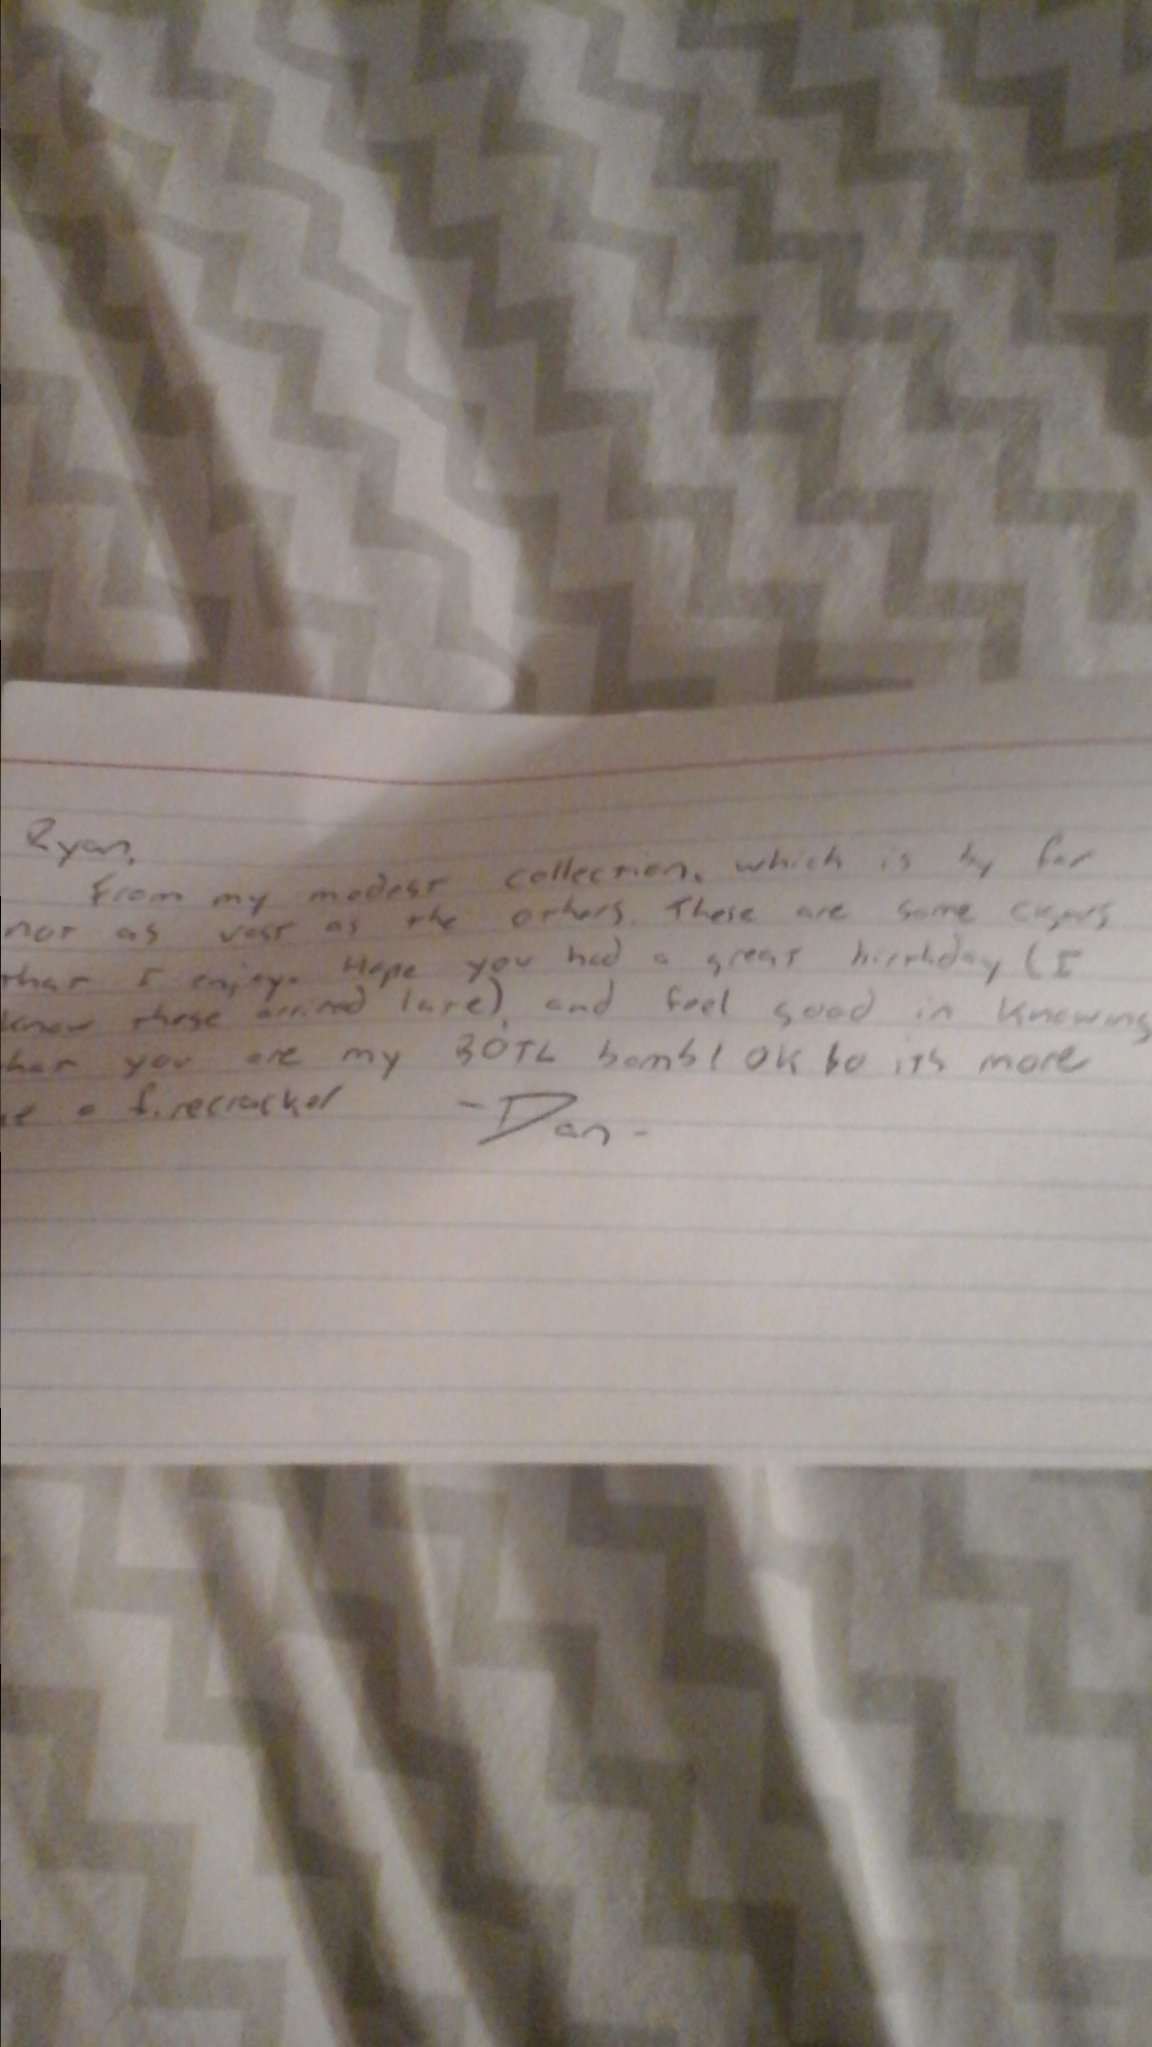 Ryan,
From my modest collection, which is by far
not as vast as the others. These are some cigars
that I enjoy. Hope you had a great birthday (I
know these arrived late) and feel good in knowing
hat you are my BOTL bomb! OK so its more
ke a firecracker -Dan-